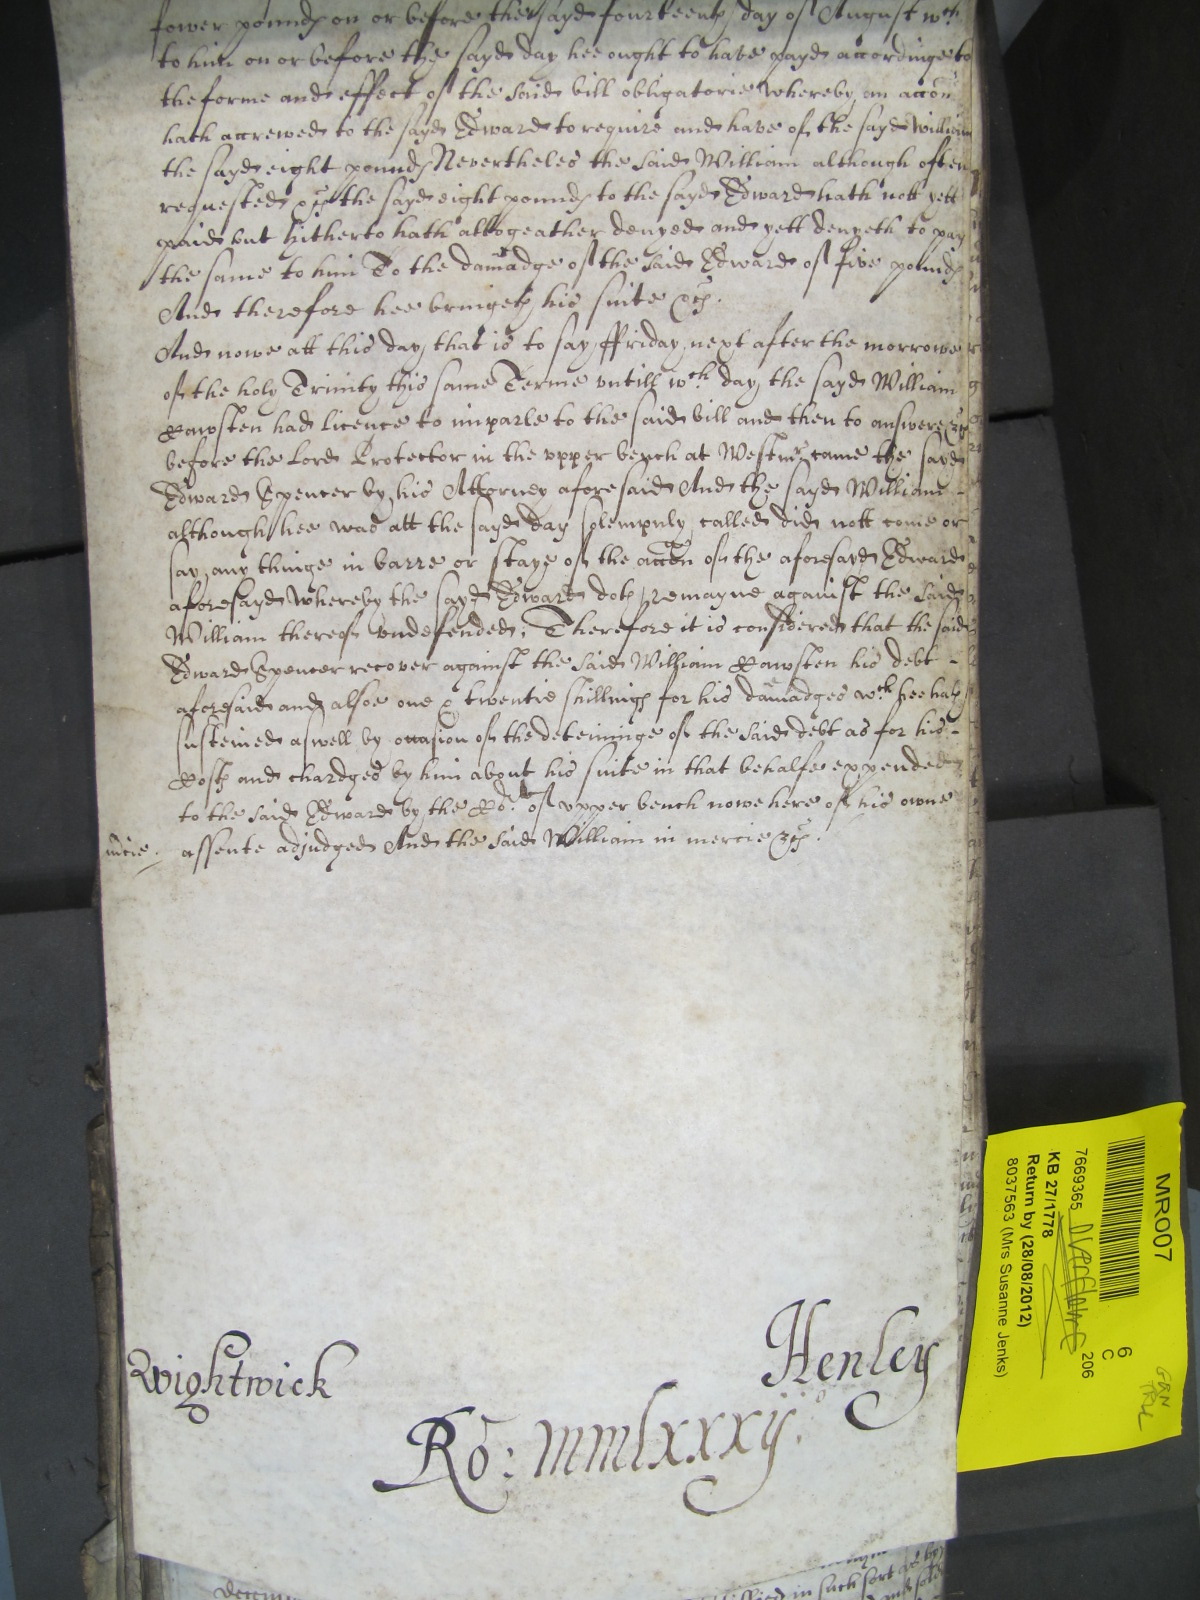 fower pounds on or before the sayd fourteenth day of August wch
to him on or before the sayd day hee ought to have payd accordinge to
the forme and effect of the said bill obligatorie Whereby an accon
hath accrewed to the sayd Edward to require and have of the sayd William
the sayd eight pounds Nevertheles the said William although often
requested &c the sayd eight pounds to the sayd Edward hath nott yett
paid but hitherto hath altogeather denyed and yett denyeth to pay
the same to him To the damadge of the said Edward of five pounds
And therefore hee bringeth his suite &c.
And nowe att this day that is to say ffriday next after the morrowe
of the holy Trinity this same Terme untill wch day the sayd William
Rawsten had licence to imparle to the said bill and then to answere &c
before the Lord Protector in the upper bench at Westmr came the sayd
Edward Spencer by his Attorney aforesaid And the sayd William
although hee was att the sayd day solempnly called did nott come or
say any thinge in barre or staye of the accon of the aforesayd Edward
aforesayd Whereby the sayd Edward doth remayne against the said
William thereof undefended; Therefore it is considered that the said
Edward Spencer recover against the said William Rawsten his debt
aforesaid and alsoe one & twentie shillings for his damadges wch hee hath
susteined aswell by occasion of the deteininge of the said debt as for his
Costs and chardges by him about his suite in that behalfe expended
to the said Edward by the Cort of upper bench nowe here of his owne
mcie. assente adjudged And the said William in mercie &c.
Wightwick
Henley
Ro: mmlxxxij.
MR007
6
C
206
GRN
7669365
KB 27/1778
Return by (28/08/2012)
8037563 (Mrs Susanne Jenks)
in such sort as by